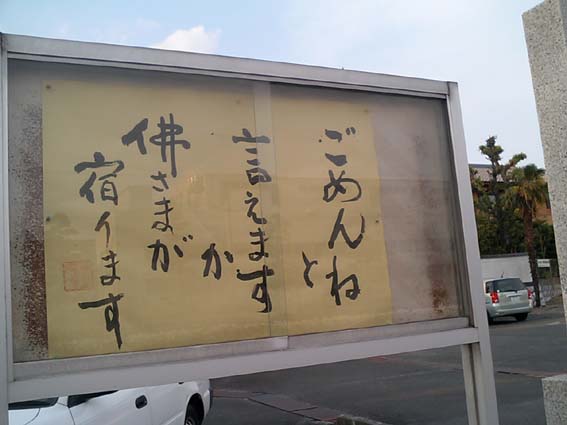 ごめんねと
言えますか
佛さまが
宿ります